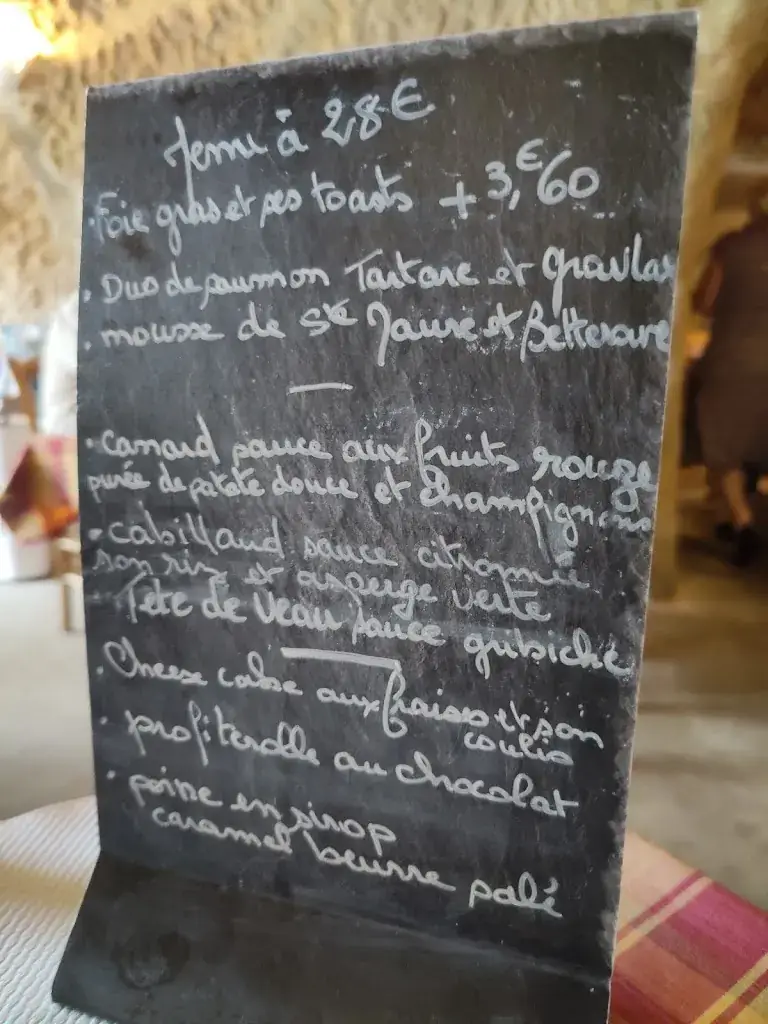 Menu à 28€
• Foie gras et ses toasts + 3,€60
• Duo de saumon Tartare et gravlax
• mousse de Ste Maure et Betterave
• canard sauce aux fruits rouge
purée de patate douce et champignons
• cabillaud sauce citronnée
son riz et asperge verte
• Tête de Veau sauce gribiche
• Cheese cake aux fraises et son
coulis
• profiterolle au chocolat
• poire en sirop
caramel beurre salé